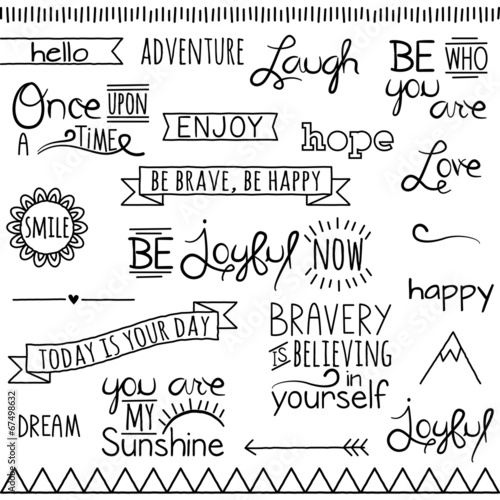 hello
ADVENTURE
Laugh
BE WHO
you
are
Once UPON
A TIME
ENJOY
hope
Love
BE BRAVE, BE HAPPY
SMILE
BE Joyful NOW
happy
TODAY IS YOUR DAY
BRAVERY
IS BELIEVING
in
yourself
you are
MY
Sunshine
DREAM
Joyful
67498632